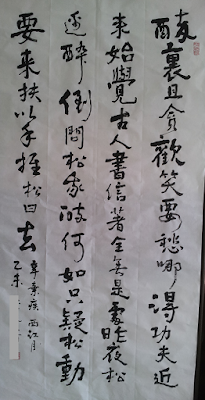 醉裏且貪歡笑要愁哪得功夫近
来始覺古人書信著全無是處昨夜松
邊醉倒問松我醉何如只疑松動
要来扶以手推松曰去
辛棄疾 西江月
乙未